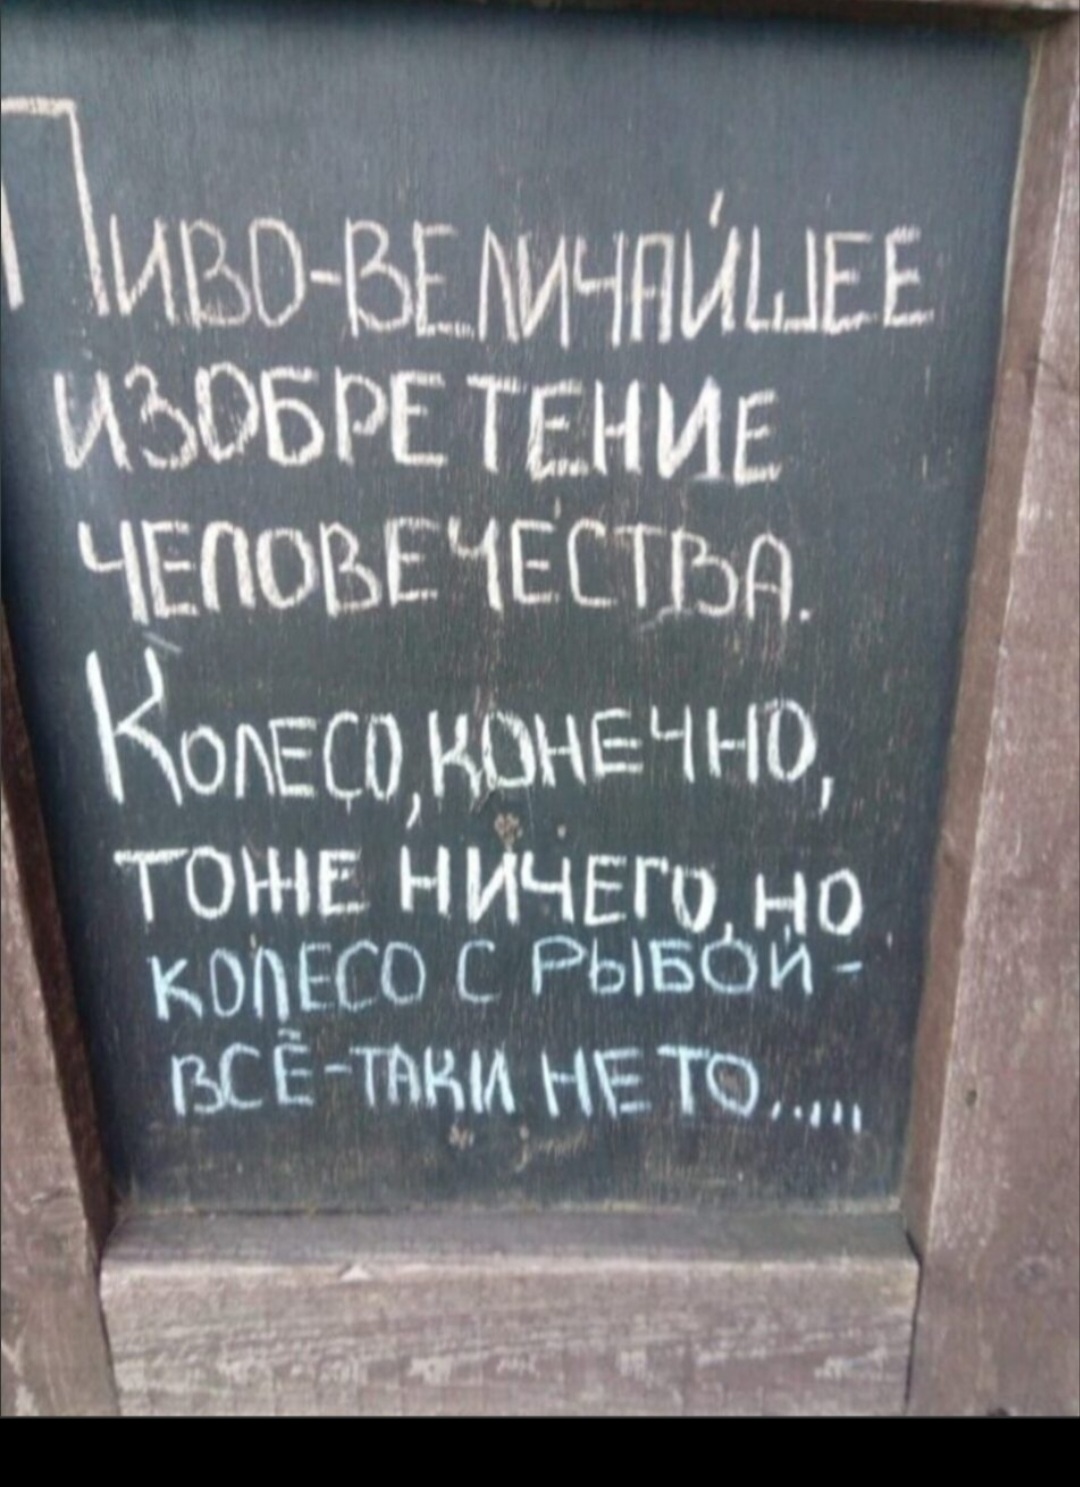 Пиво-величайшее
изобретение
человечества.
Колесо, конечно,
тоже ничего, но
колесо с рыбой -
всё-таки не то.....